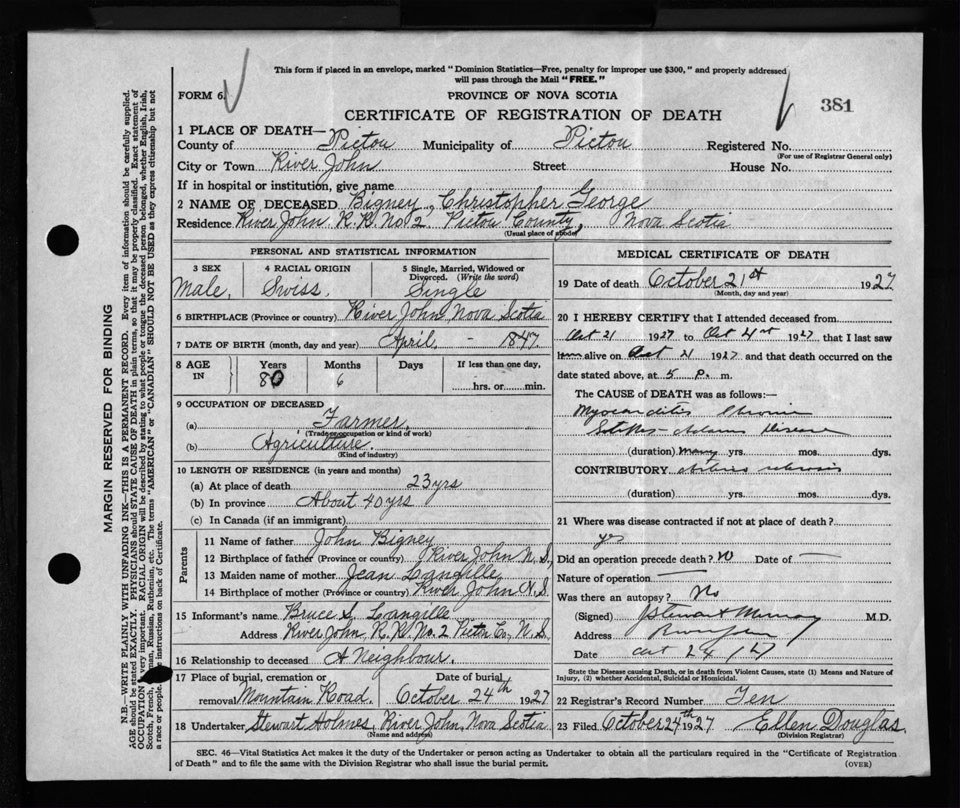 This form if placed in an envelope, marked "Dominion Statistics—Free, penalty for improper use $300," and properly addressed
will pass through the Mail "FREE."
FORM 6.
PROVINCE OF NOVA SCOTIA
381
CERTIFICATE OF REGISTRATION OF DEATH
1 PLACE OF DEATH—
County of Pictou Municipality of Pictou Registered No.
(For use of Registrar General only)
City or Town River John Street House No.
If in hospital or institution, give name
2 NAME OF DECEASED Bigney, Christopher George
Residence River John R.R. No 2 Pictou County, Nova Scotia
(Usual place of abode)
PERSONAL AND STATISTICAL INFORMATION
3 SEX 4 RACIAL ORIGIN 5 Single, Married, Widowed or
Divorced. (Write the word)
Male. Swiss. Single
6 BIRTHPLACE (Province or country) River John Nova Scotia
7 DATE OF BIRTH (month, day and year) April. - 1847.
8 AGE IN Years Months Days If less than one day,
80 6 hrs. or min.
9 OCCUPATION OF DECEASED
(a) Farmer.
(Trade occupation or kind of work)
(b) Agriculture.
(Kind of industry)
10 LENGTH OF RESIDENCE (in years and months)
(a) At place of death 23 yrs
(b) In province About 40 yrs
(c) In Canada (if an immigrant)
Parents
11 Name of father John Bigney
12 Birthplace of father (Province or country) River John N.S.
13 Maiden name of mother Jean Langille
14 Birthplace of mother (Province or country) River John N.S.
15 Informant's name Bruce S. Langille
Address River John, R.R. No. 2 Pictou Co, N.S.
16 Relationship to deceased A Neighbour.
17 Place of burial, cremation or Date of burial
removal Mountain Road. October 24th 1927
18 Undertaker Stewart Holmes, River John, Nova Scotia
(Name and address)
MEDICAL CERTIFICATE OF DEATH
19 Date of death October 21st 1927
(Month, day and year)
20 I HEREBY CERTIFY that I attended deceased from
Oct 21 1927 to Oct 21st 1927 that I last saw
him alive on Oct 21 1927 and that death occurred on the
date stated above, at 5 P. m.
The CAUSE of DEATH was as follows:—
Myocarditis Chronic
Stokes-Adams Disease
(duration) many yrs. mos. dys.
CONTRIBUTORY
(duration) yrs. mos. dys.
21 Where was disease contracted if not at place of death?
yes
Did an operation precede death? No Date of —
Nature of operation —
Was there an autopsy? No
(Signed) Murray M.D.
Address River John
Date Oct 24 / 27
State the Disease causing Death, or in death from Violent Causes, state (1) Means and Nature of
Injury, (2) whether Accidental, Suicidal or Homicidal.
22 Registrar's Record Number Ten
23 Filed October 24th 1927 Ellen Douglas
(Division Registrar)
SEC. 46—Vital Statistics Act makes it the duty of the Undertaker or person acting as Undertaker to obtain all the particulars required in the "Certificate of Registration
of Death" and to file the same with the Division Registrar who shall issue the burial permit.
(OVER)
MARGIN RESERVED FOR BINDING
N.B.—WRITE PLAINLY WITH UNFADING INK—THIS IS A PERMANENT RECORD. Every item of information should be carefully supplied.
AGE should be stated EXACTLY. PHYSICIANS should STATE CAUSE OF DEATH in plain terms, so that it may be properly classified. Exact statement of
OCCUPATION very important. RACIAL ORIGIN will be described by stating to what people or tongue the deceased person belonged, whether English, Irish,
Scotch, French, Russian, Ruthenian, etc. The terms "AMERICAN" or "CANADIAN" SHOULD NOT BE USED as they express citizenship but not
a race or people. instructions on back of Certificate.